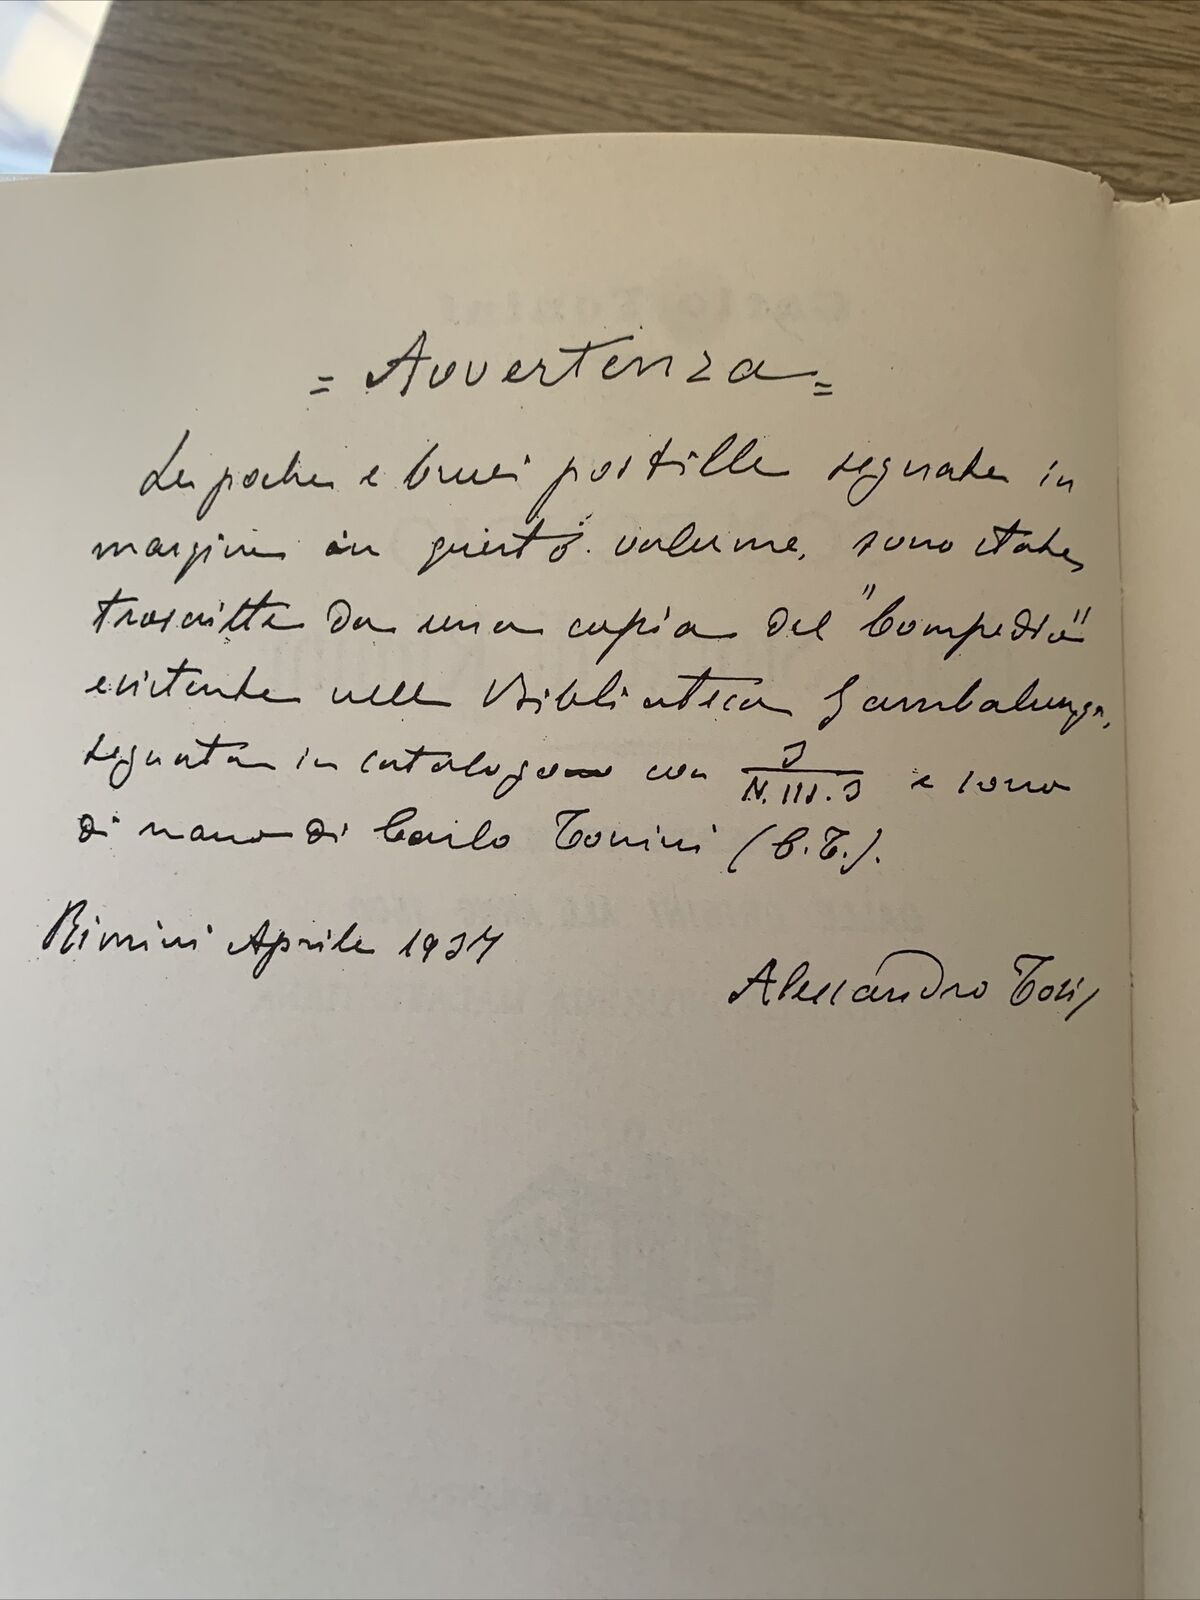 = Avvertenza =
Le poche e brevi postille segnate in
margine in questo volume, sono state
trascritte da una copia del "Compedio"
esistente nella Biblioteca Gambalunga,
segnata in catalogo con
e sono
di mano di Carlo Tonini (C.T.).
Rimini Aprile 1937
Alessandro Tosi
Carlo Tonini